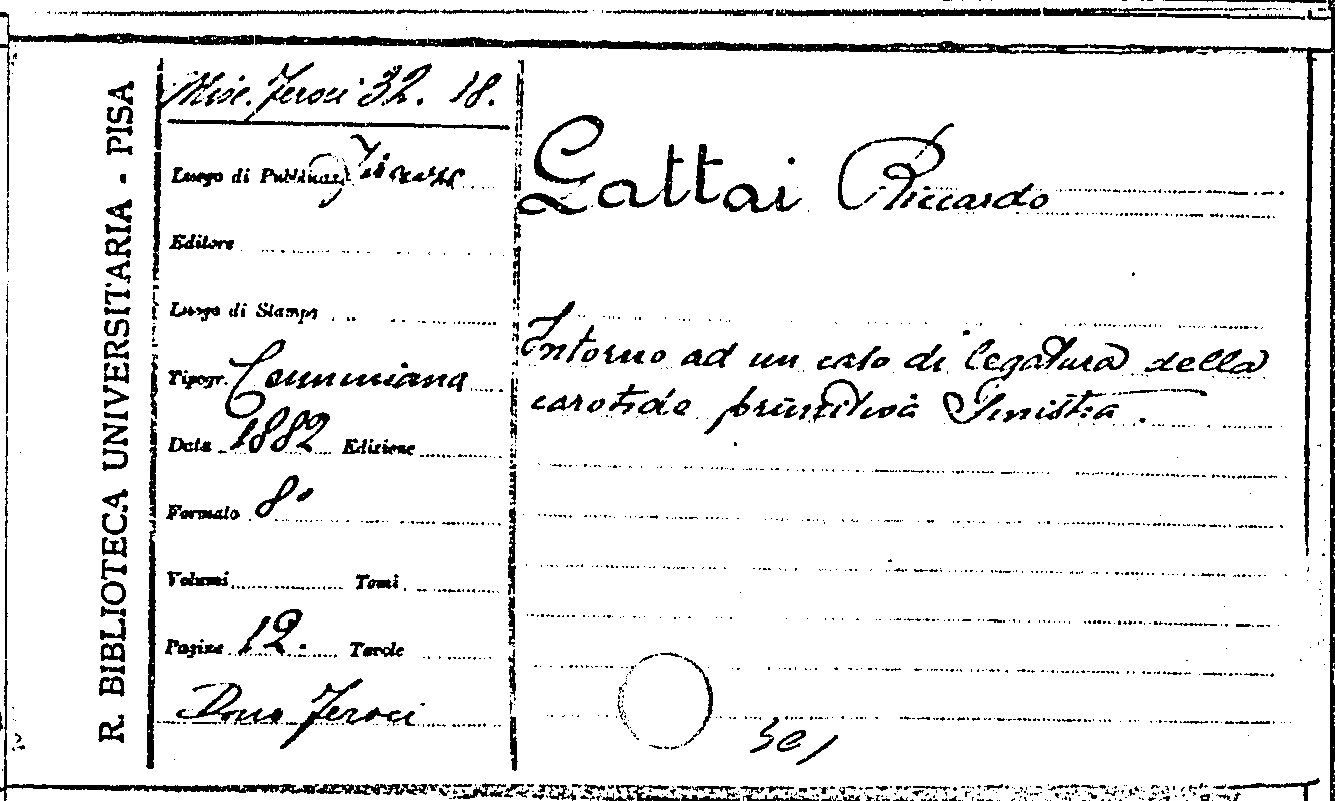 R. BIBLIOTECA UNIVERSITARIA - PISA
Misc. Feroci 32. 18.
Luogo di Pubblicaz. Firenze
Editore
Luogo di Stampa
Tipogr. Cenniniana
Data 1882 Edizione
Formato 8°
Volumi Tomi
Pagine 12. Tavole
Dono Feroci
Gattai Riccardo
Intorno ad un caso di legatura della
carotide primitiva Sinistra.